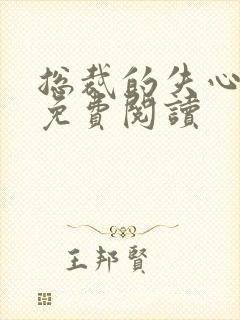 总裁的失心
免費閱讀
王邦賢